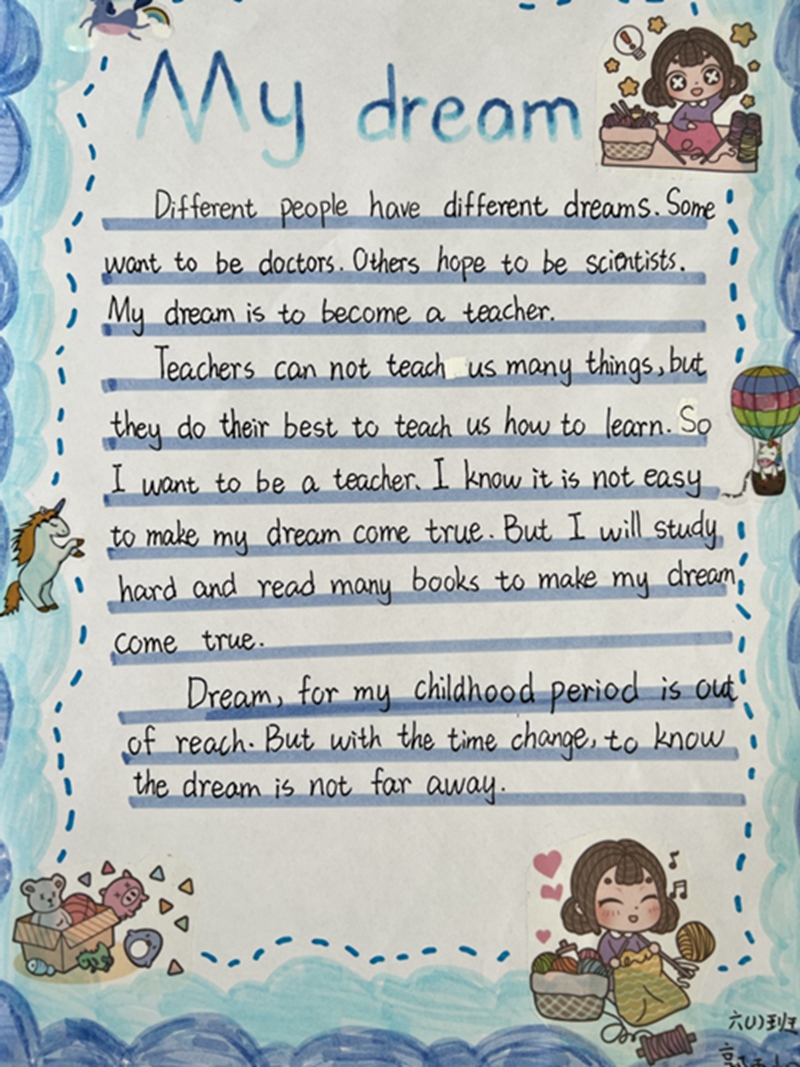 My dream
Different people have different dreams. Some
want to be doctors. Others hope to be scientists.
My dream is to become a teacher.
Teachers can not teach us many things, but
they do their best to teach us how to learn. So
I want to be a teacher. I know it is not easy
to make my dream come true. But I will study
hard and read many books to make my dream
come true.
Dream, for my childhood period is out
of reach. But with the time change, to know
the dream is not far away.
六(1)班